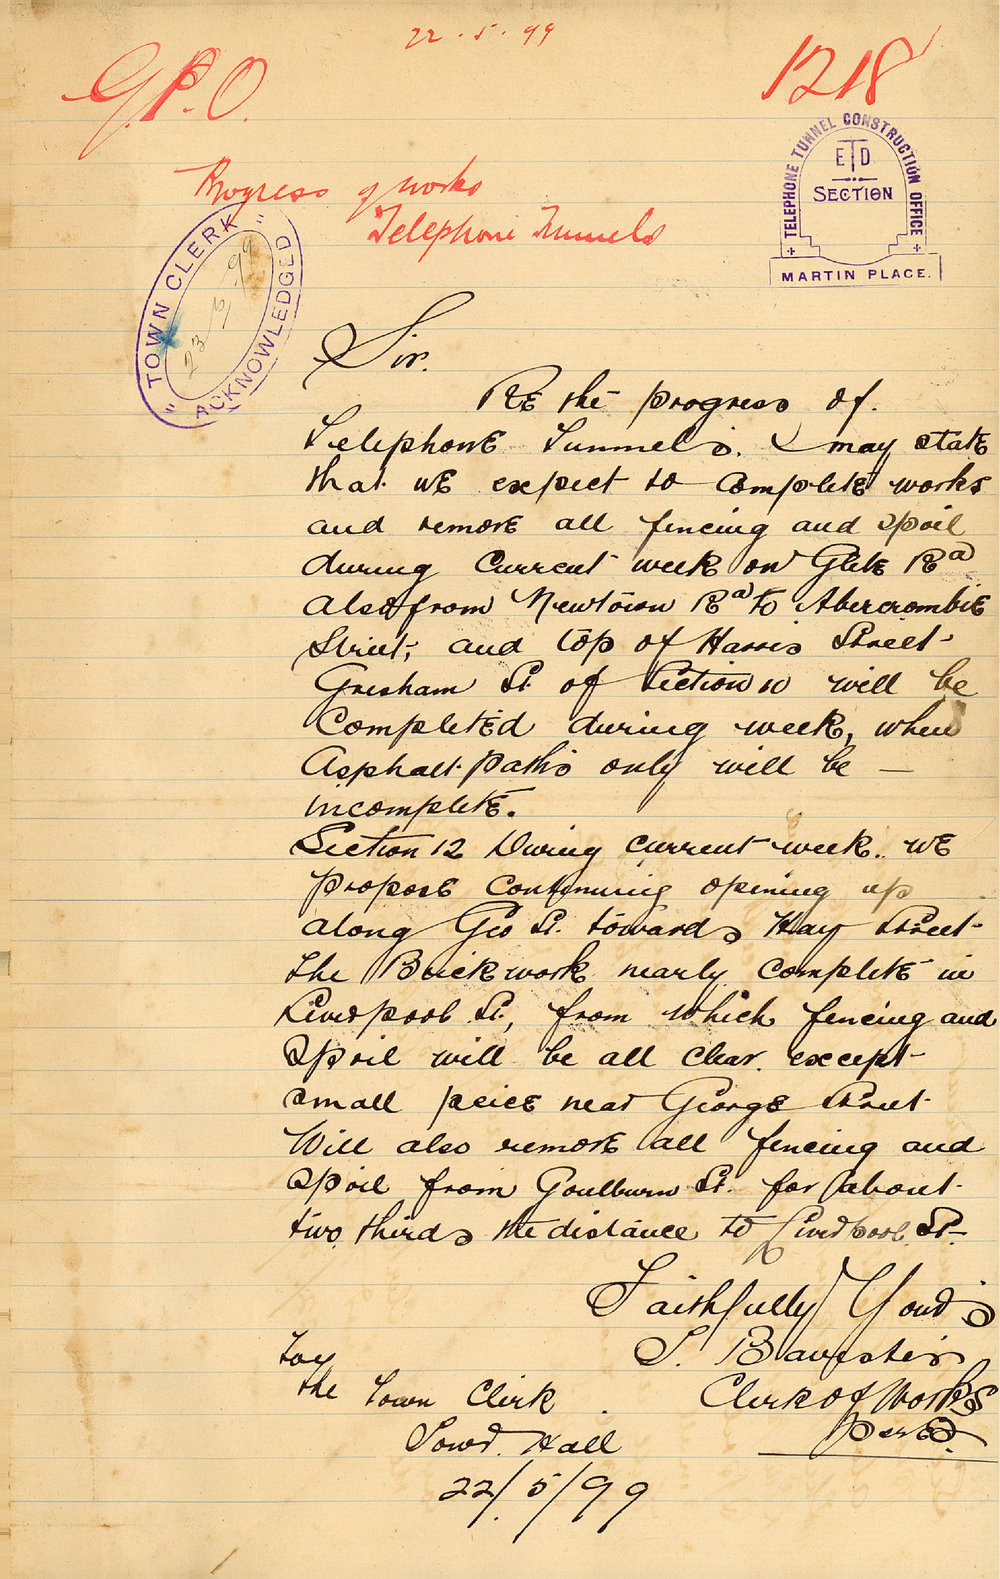 22.5.99
G.P.O.
1218
Progress of works
Telephone Tunnels
TELEPHONE TUNNEL CONSTRUCTION OFFICE
ETD
SECTION
MARTIN PLACE.
"TOWN CLERK"
23/5/99
ACKNOWLEDGED
Sir.
RE the progress of.
Telephone Tunnels. I may state
that we expect to complete works
and remove all fencing and spoil
during current week on Glebe Rd
also from Newtown Rd to Abercrombie
Street, and top of Harris Street
Gresham St of Section 10 will be
completed during week, when
Asphalt paths only will be —
incomplete.
Section 12 During current week. we
propose continuing opening up
along Geo St. towards Hay Street
the Brickwork nearly complete in
Liverpool St, from which fencing and
spoil will be all clear. except
small peice near George Street
Will also remove all fencing and
spoil from Goulburn St. for about
two thirds the distance to Liverpool St.
Faithfully Yours
Clerk of Works
per ED.
Toy
the Town Clerk
Town Hall
22/5/99